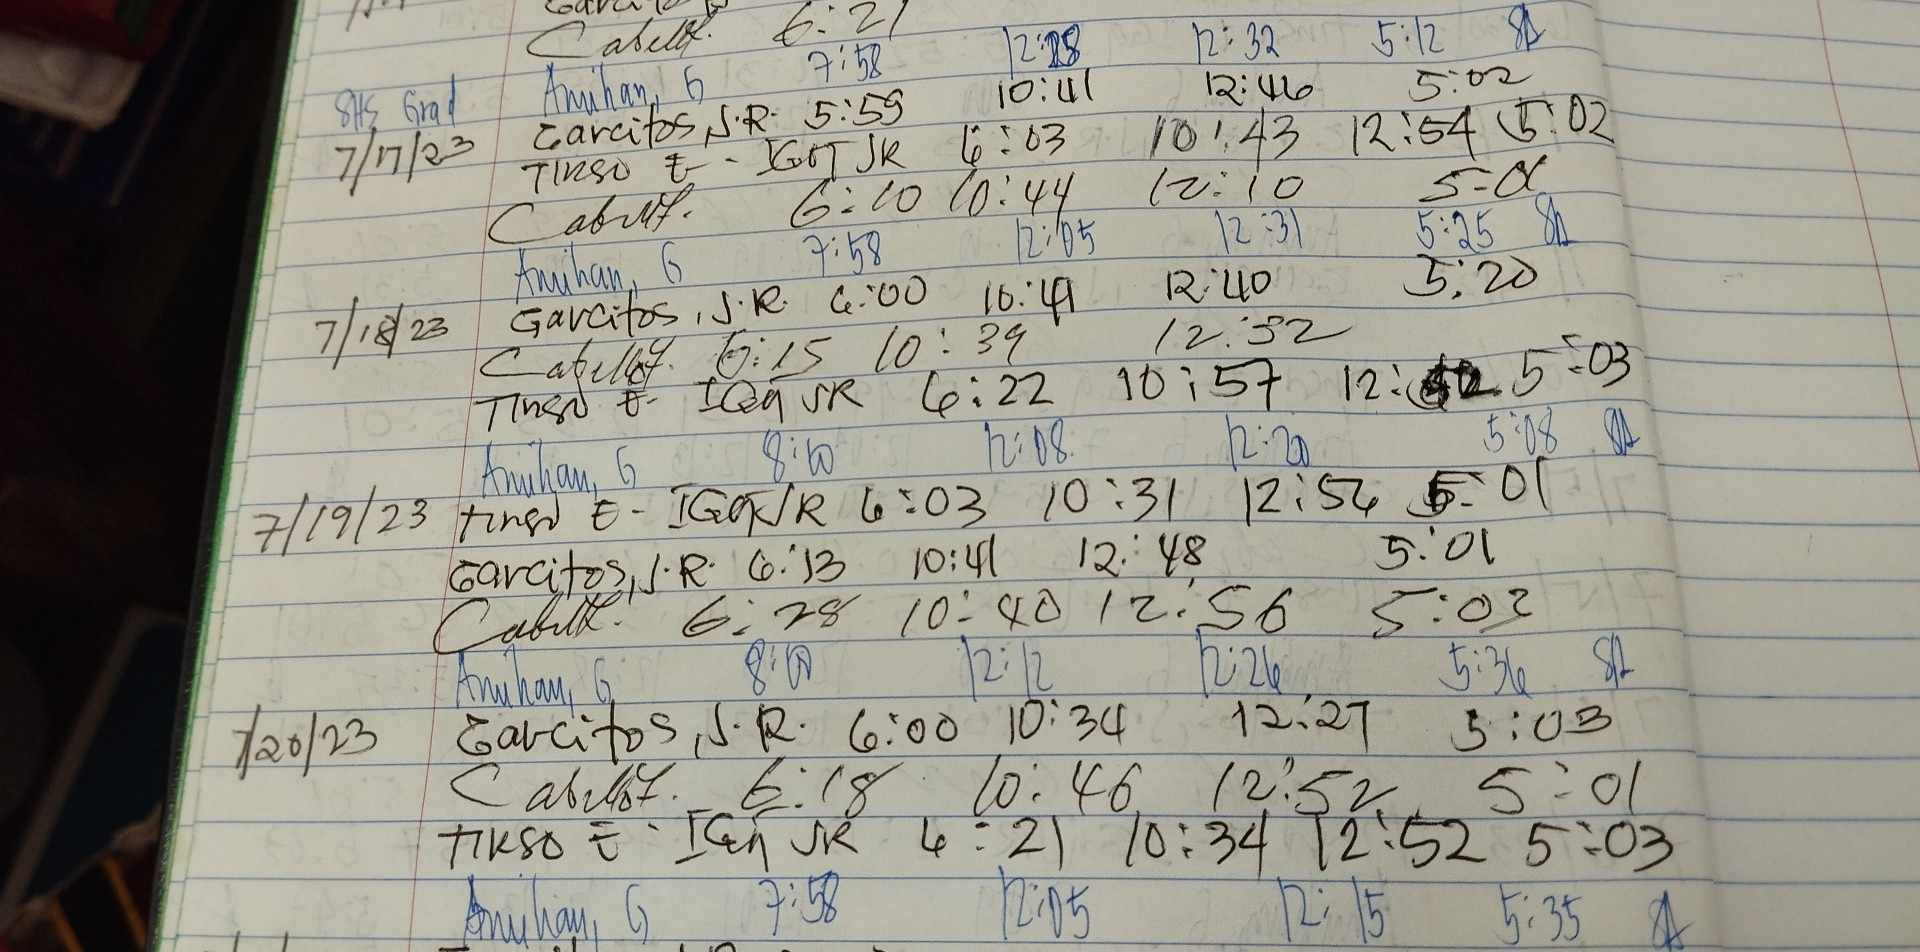 Cabello 6:21
Anihan, G 7:58 12:28 12:32 5:12
SHS Grad
7/17/23 Garcitos, J.R. 5:59 10:41 12:46 5:02
TIRSO E - IGOT JR 6:03 10:43 12:54 5:02
Cabello 6:10 10:44 12:10 5:01
Anihan, G 7:58 12:05 12:31 5:25
7/18/23 Garcitos, J.R. 6:00 10:41 12:40 5:20
Cabello 6:15 10:39 12:52
TIRSO E - IGOT JR 6:22 10:57 12: 5:03
Anihan, G 8:00 12:08 12:20 5:08
7/19/23 TIRSO E - IGOT JR 6:03 10:31 12:56 5:01
Garcitos, J.R. 6:13 10:41 12:48 5:01
Cabello 6:28 10:40 12:56 5:03
Anihan, G 8:00 12:12 12:26 5:36
7/20/23 Garcitos, J.R. 6:00 10:34 12:27 5:03
Cabello 6:18 10:46 12:52 5:01
TIRSO E - IGOT JR 6:21 10:34 12:52 5:03
Anihan, G 7:58 12:05 12:15 5:35